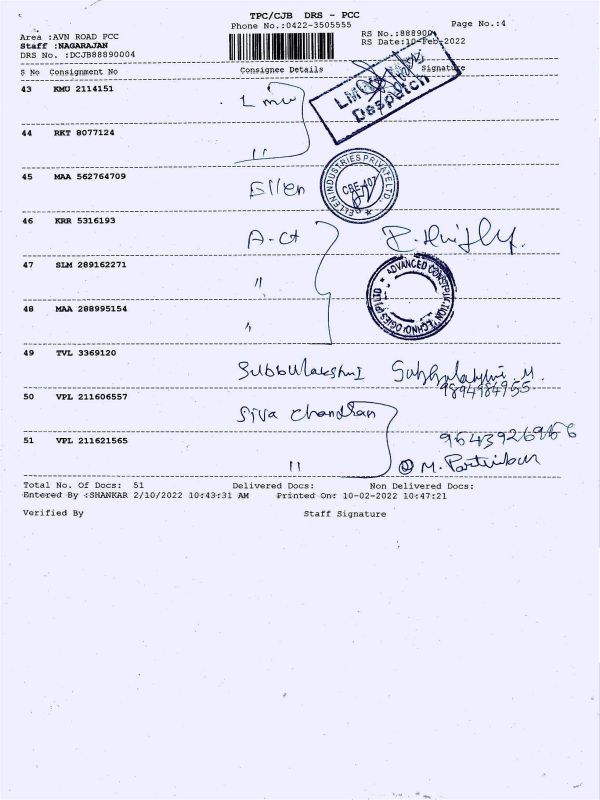 TPC/CJB DRS - PCC
Phone No.:0422-3505555 Page No.:4
Area :AVN ROAD PCC RS No.:888900
Staff :NAGARAJAN RS Date:10-Feb-2022
DRS No. :DCJB88890004
S No Consignment No Consignee Details Signature
43 KMU 2114151 Lmw
LMW
Despatch
44 RKT 8077124 "
45 MAA 562764709 Ellen
ELLEN INDUSTRIES PRIVATE LTD.
CBE-407
46 KRR 5316193 A-Ct
47 SLM 289162271 "
ADVANCED CONSTRUCTION TECHNOLOGIES (P) LTD
48 MAA 288995154 "
49 TVL 3369120 Subbulakshmi
9894984955
50 VPL 211606557 Siva Chandran
51 VPL 211621565 "
Total No. Of Docs: 51 Delivered Docs: Non Delivered Docs:
Entered By :SHANKAR 2/10/2022 10:43:31 AM Printed On: 10-02-2022 10:47:21
Verified By Staff Signature